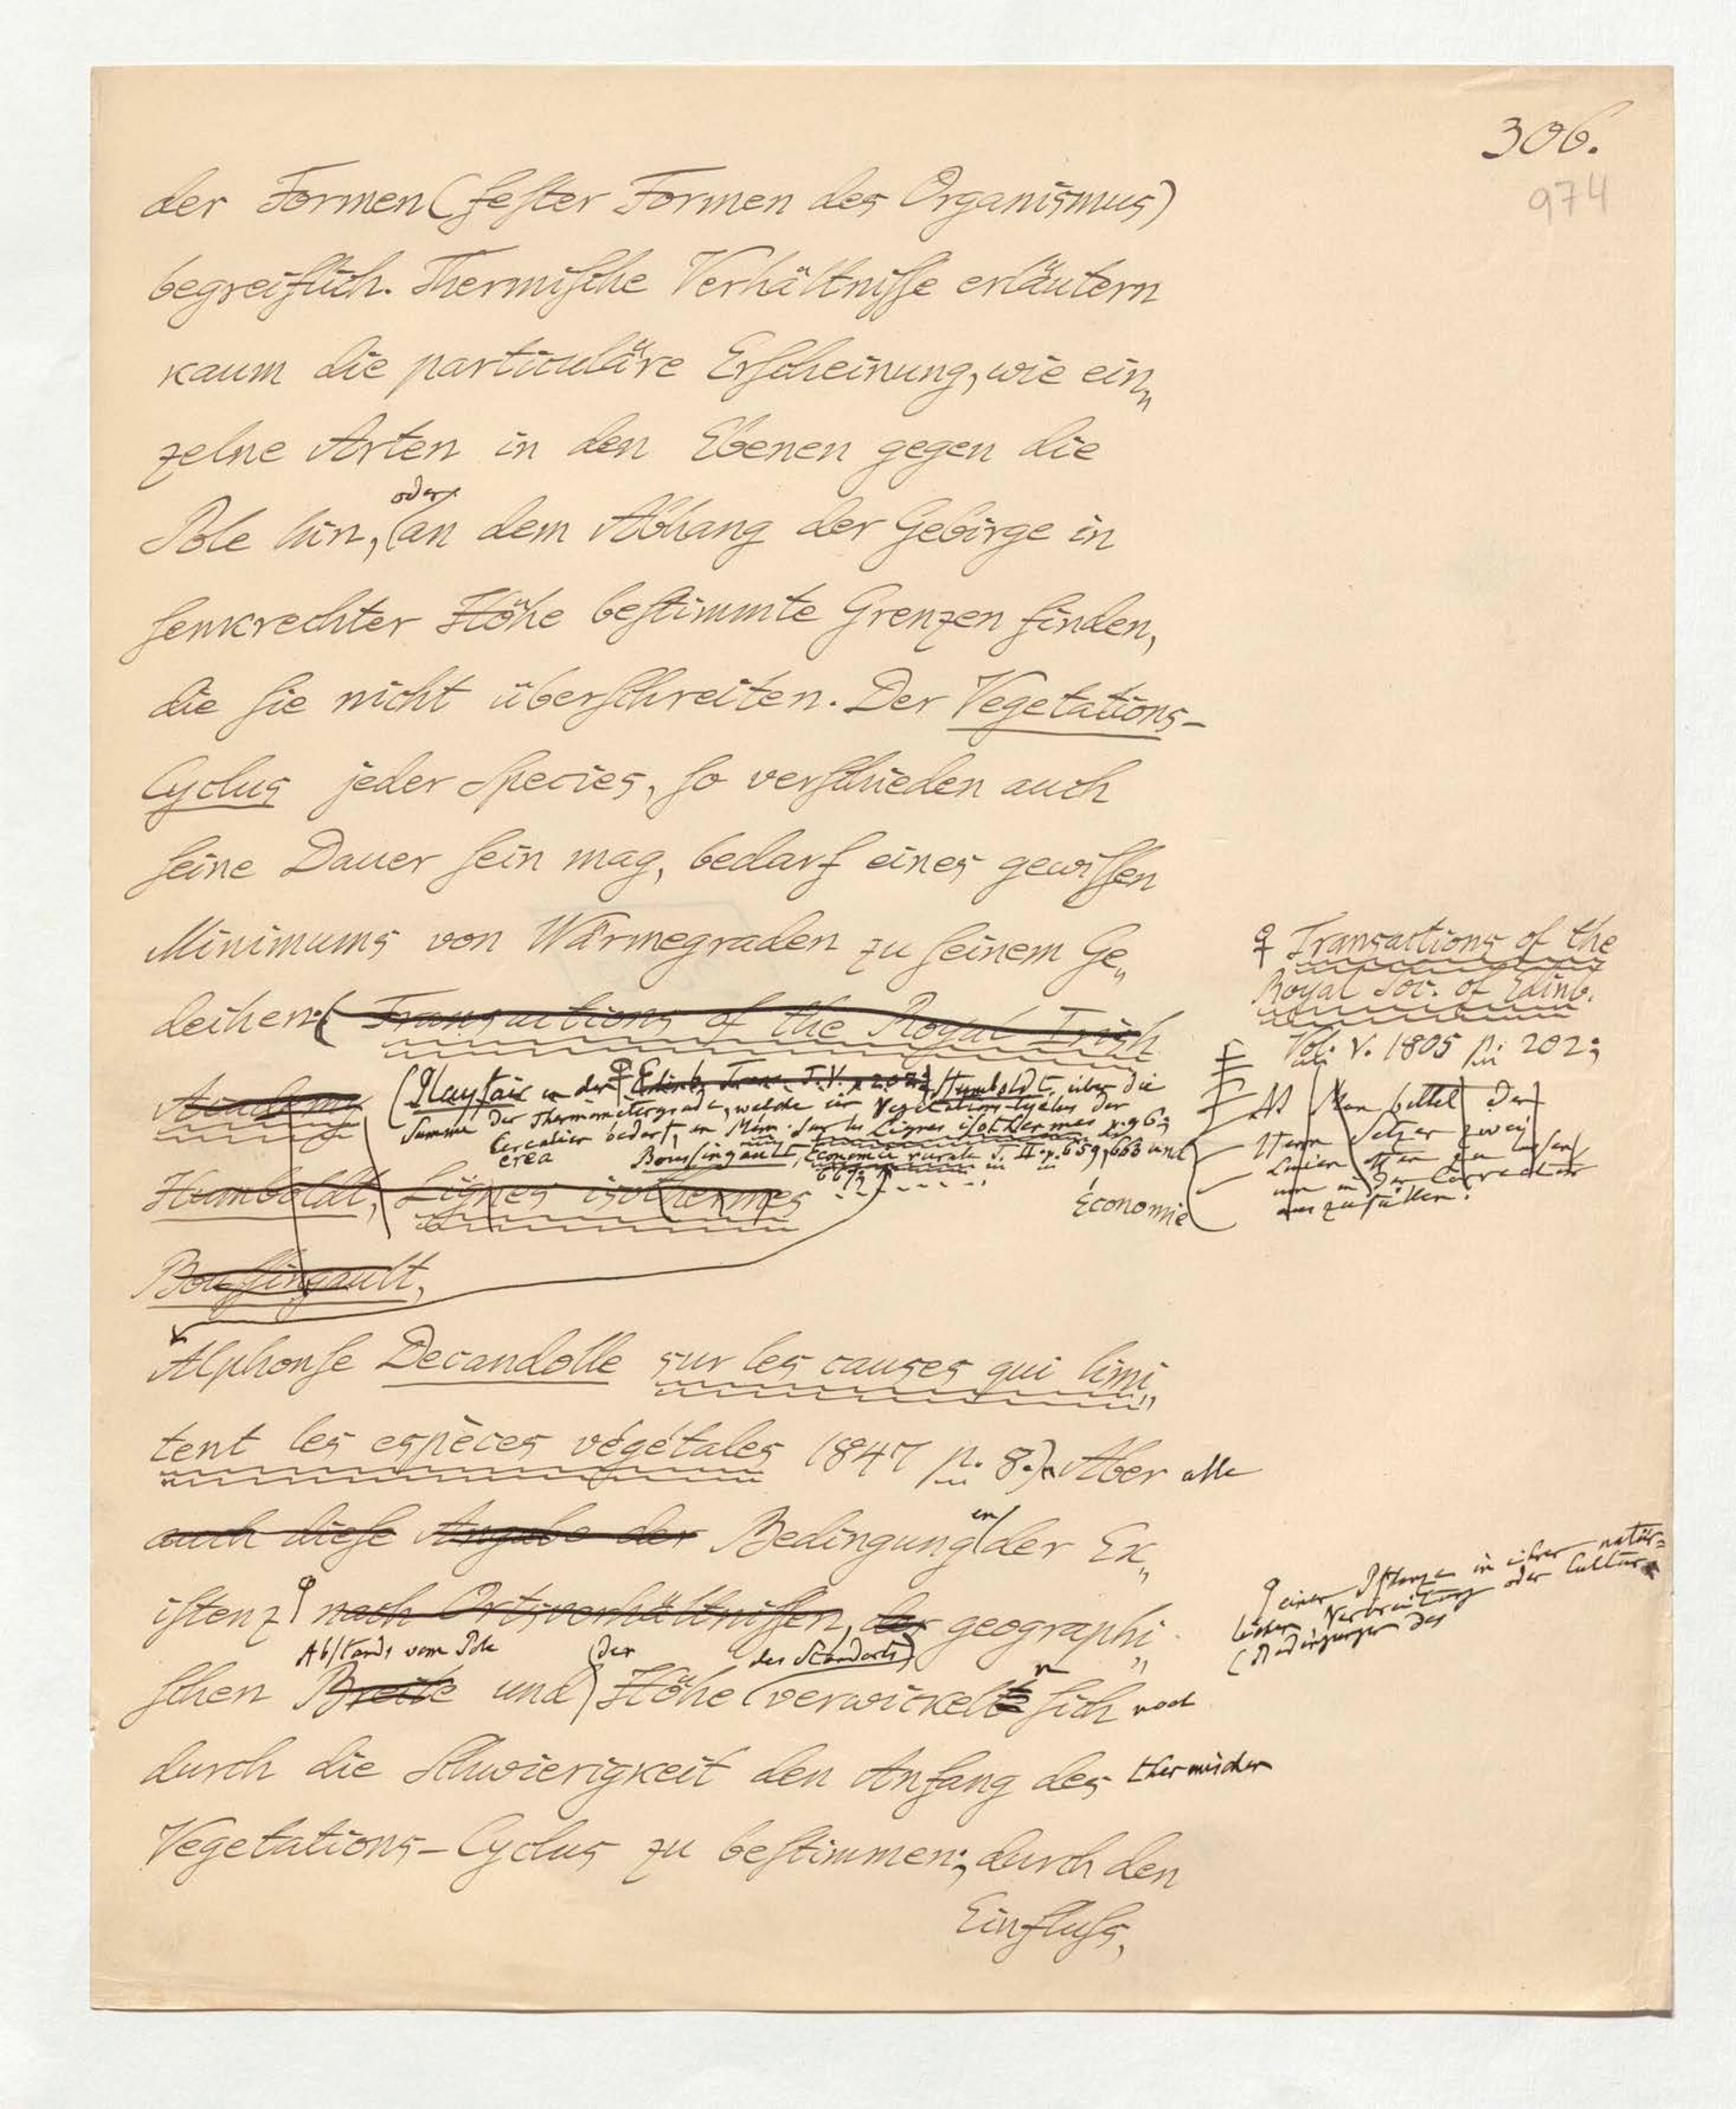 306.
974
der Formen (fester Formen des Organismus)
begreiflich. Thermische Verhältnisse erläutern
kaum die particuläre Erscheinung, wie ein„
zelne Arten in den Ebenen gegen die
oder
Pole hin, (an dem Abhang der Gebirge in
senkrechter Höhe bestimmte Grenzen finden,
die sie nicht überschreiten. Der Vegetations-
Cyclus jeder Species, so verschieden auch
seine Dauer sein mag, bedarf eines gewissen
Minimums von Wärmegraden zu seinem Ge„
deihen (Transactions of the Royal Irish
Academy
(Playfair in den Edinb. Tran. T. V. p. 202; Humboldt, über die
Summe der Thermometergrade, welche ein Vegetations-Cyclus der
Cerealier bedarf, in Mém. sur les Lignes isothermes p. 96;
crea
Boussingault, Économie rurale T. II. p. 659, 663 und
667;
Humboldt, Lignes isothermes
Économie
Boussingault,
Alphonse Decandolle sur les causes qui limi„
tent les espèces végétales 1847 p. 8.). Aber alle
auch diese Angabe der Bedingungen der Ex„
istenz nach Ortsverhältnissen, der geographi„
Abstands vom Pole (der des Standorts)
schen Breite und Höhe verwickelten sich noch
durch die Schwierigkeit den Anfang des thermischen
Vegetations-Cyclus zu bestimmen; durch den
Einfluss,
Transactions of the
Royal Soc. of Edinb.
Vol. V. 1805 p. 202;
Man bittet Den
Herrn Setzer zwei
Linien zu lassen
um in der Correctur
auszufüllen.
einer Pflanze in ihrer natür=
lichen Verbreitung oder Cultur
(Bedingungen des